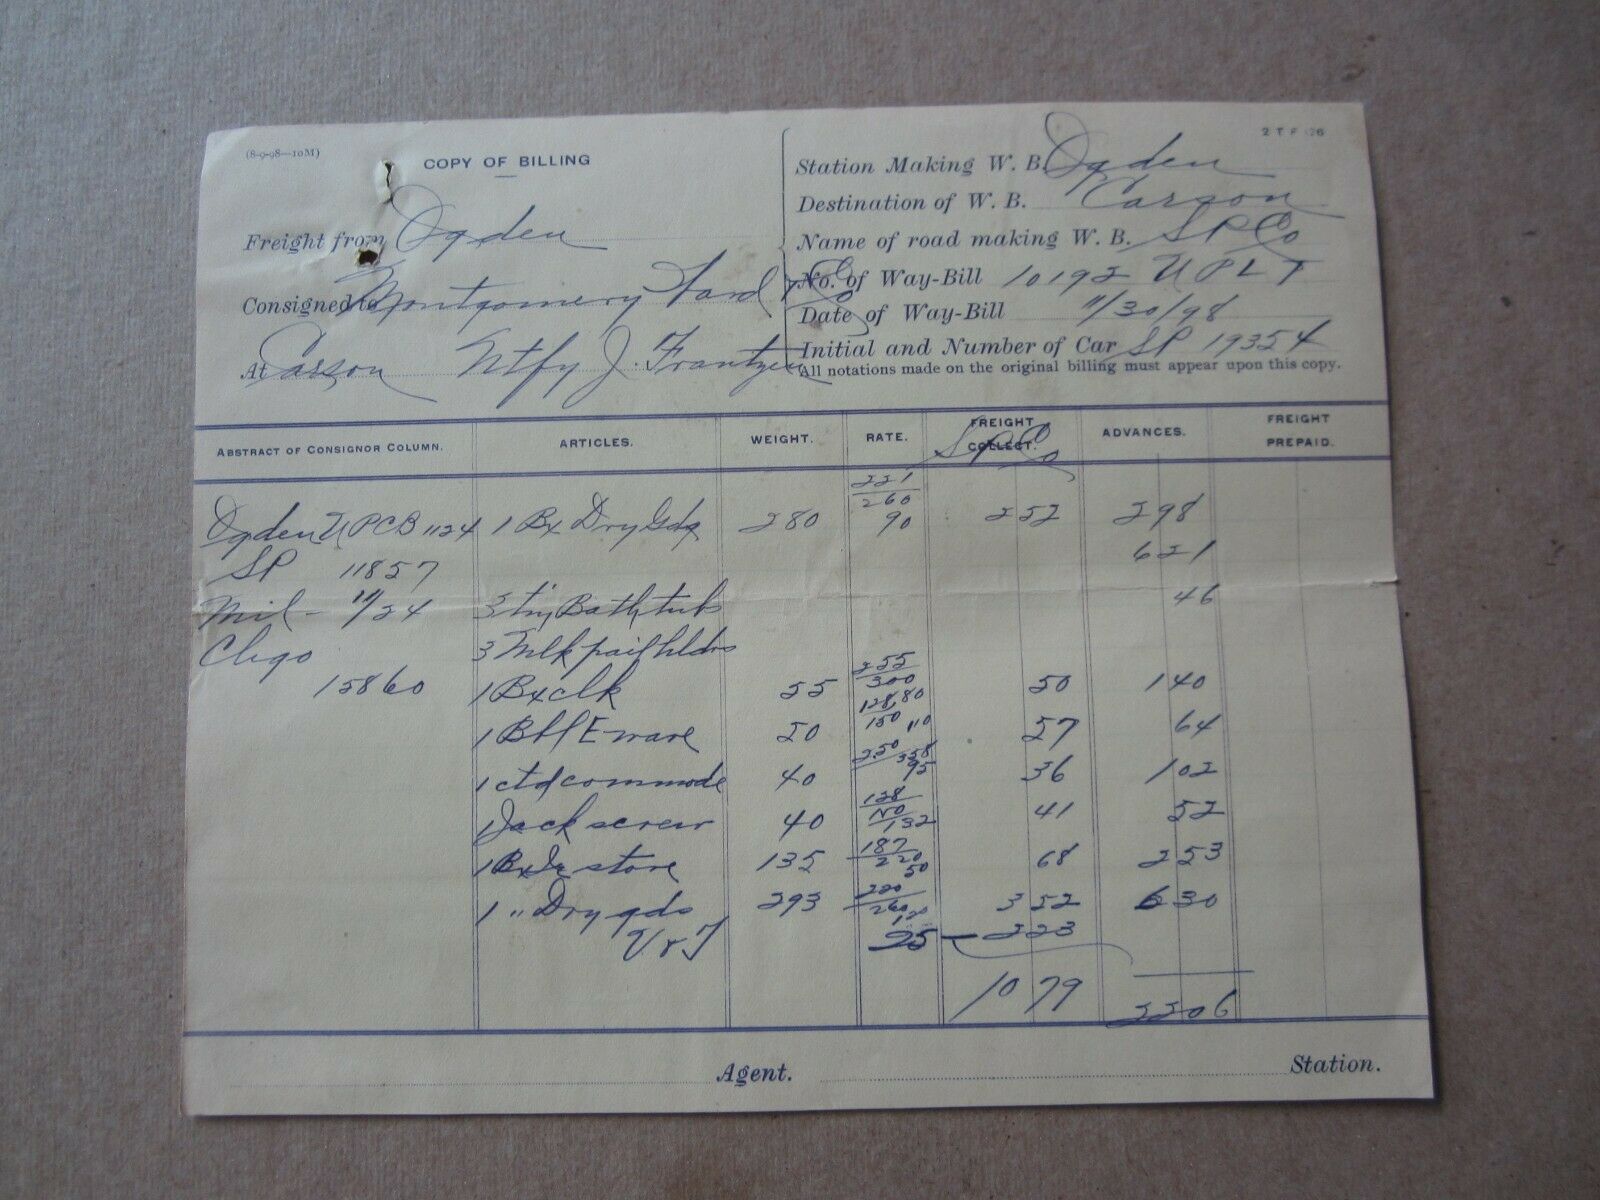 (8-9-98—10M)
COPY OF BILLING
2 T F
Freight from Ogden
Consigned to Montgomery Ward & Co
At Carson Ntfy J. Frantzen
Station Making W. B. Ogden
Destination of W. B. Carson
Name of road making W. B. S P Co
No. of Way-Bill 10192 U P L T
Date of Way-Bill 11/30/98
Initial and Number of Car SP 19354
All notations made on the original billing must appear upon this copy.
ABSTRACT OF CONSIGNOR COLUMN. ARTICLES. WEIGHT. RATE. FREIGHT COLLECT. ADVANCES. FREIGHT PREPAID.
S P Co
221
260
Ogden U P C B 1124 1 Bx Dry Gds 280 90 252 298
SP 11857 621
Mil - 11/24 3 tin Bath tubs 46
Chgo 3 Mlk pail hldrs
255
15860 1 Bx clk 55 300 50 140
128 80
1 Bbl E ware 50 150 110 57 64
250
1 ctd commode 40 95 36 102
128
1 Jack screw 40 132 41 52
187
1 Bx stove 135 220 50 68 253
220
1 " Dry gds 293 260 120 352 630
V & T 95 — 223
10 79 2206
Agent. Station.